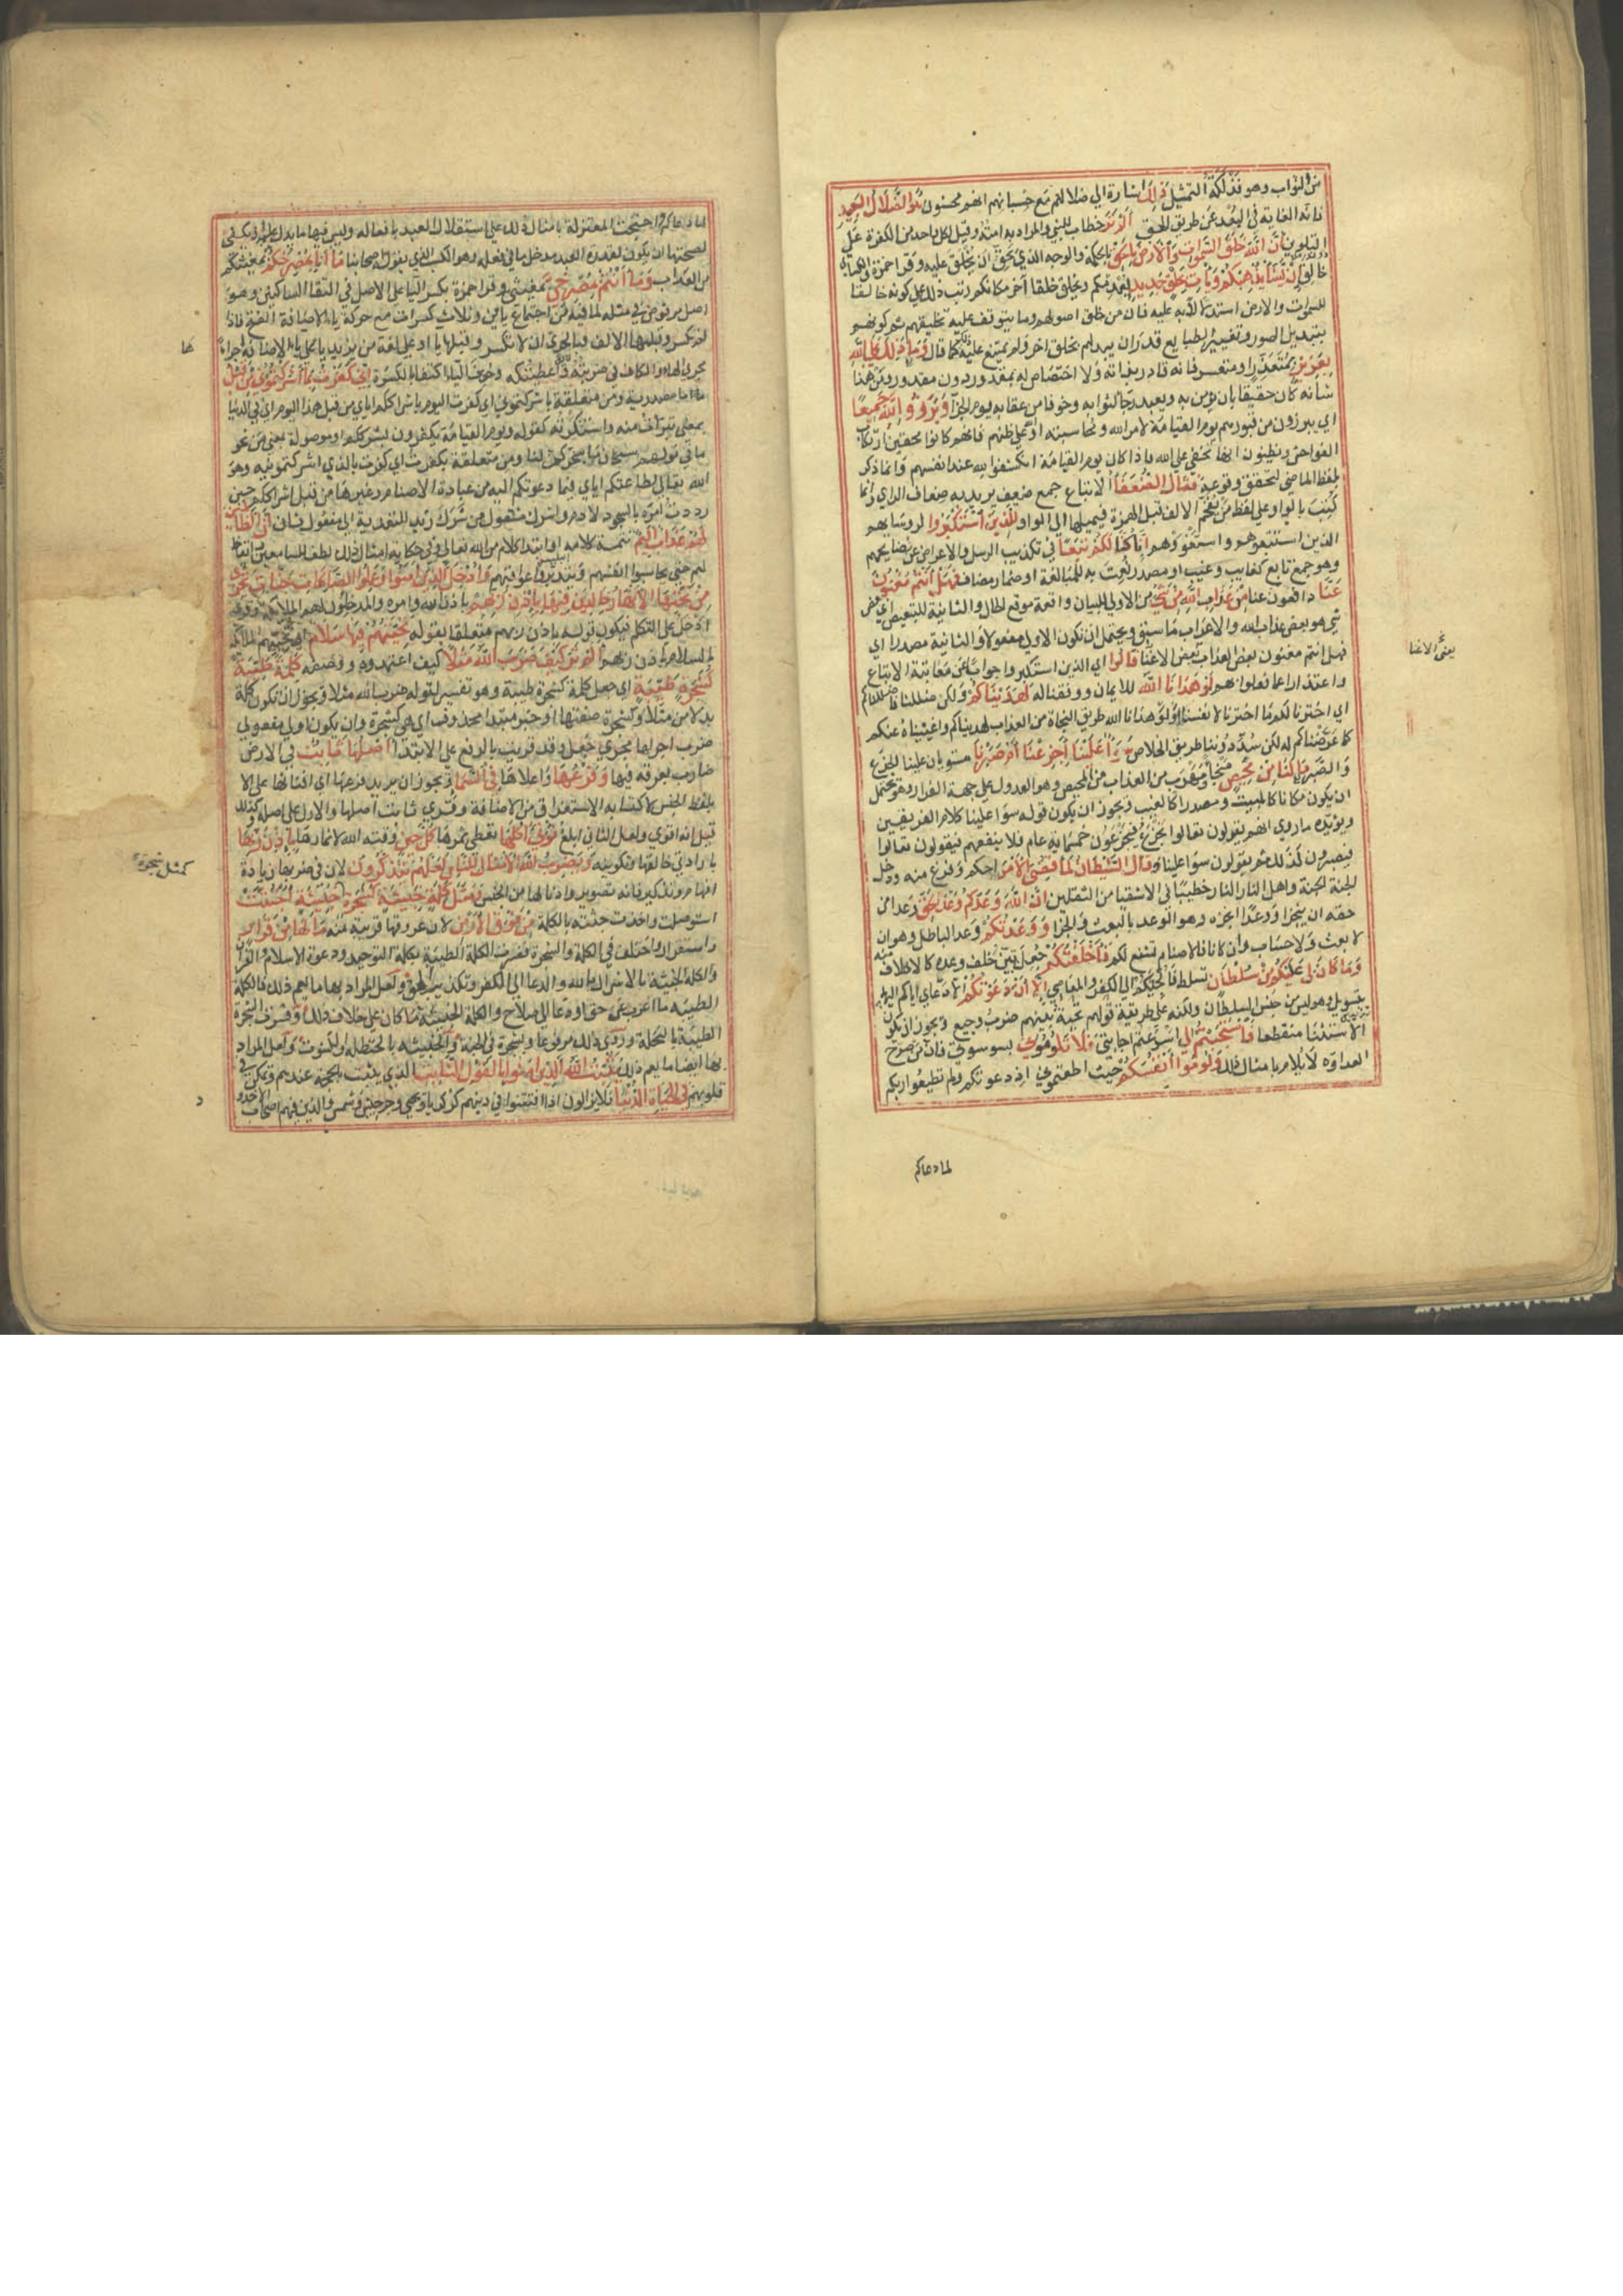 من الثواب وهو فذلكة التمثيل ذلك اشارة الي ضلالهم مع حسبانهم انهم محسنون هو الضلال البعيد
فانه الغاية في البعد عن طريق الحق الم تر خطاب للنبي والمراد به امته وقيل لكل واحد من الكفرة علي
التلوين ان الله خلق السموات والارض بالحق بالحكمة والوجه الذي يحق ان تخلق عليه وقرا حمزة والكسائي
خالق ان يشا يذهبكم ويات بخلق جديد يعدمكم ويخلق خلقا آخر مكانكم رتب ذلك علي كونه خالقا
للسموات والارض استدلالا به عليه فان من خلق اصولهم وما يتوقف عليه تخليقهم ثم كونهم
بتبديل الصور وتغيير الطبايع قدر ان يبدلهم بخلق اخر ولم يمتنع عليه كما قال وما ذلك علي الله
بعزيز بمتعذر او متعسر فانه قادر بذاته ولا اختصاص له بمقدور دون مقدور ومن هذا
شانه كان حقيقا بان يؤمن به ويعبد رجا لثوابه وخوفا من عقابه يوم الجزا وبرزوا لله جميعا
اي يبرزون من قبورهم يوم القيامة لامر الله ومحاسبته او علي ظنهم فانهم كانوا يخفون ارتكاب
الفواحش ويظنون انها تخفي علي الله فاذا كان يوم القيامة انكشفوا لله عند انفسهم وانما ذكر
بلفظ الماضي لتحقق وقوعه فقال الضعفا الاتباع جمع ضعيف يريد به ضعاف الراي وانما
كتبت بالواو علي لفظ من يفخم الالف قبل الهمزة فيميلها الي الواو للذين استكبروا لروسايهم
الذين استتبعوهم واستغووهم انا كنا لكم تبعا في تكذيب الرسل والاعراض عن نصايحهم
وهو جمع تابع كغايب وغيب او مصدر نعت به للمبالغة او ضمار مضاف فهل انتم مغنون
عنا دافعون عنا من عذاب الله من شي من الاولي للبيان واقعة موقع الحال والثانية للتبعيض اي بعض
شي هو بعض عذاب الله والاعراب ما سبق ويحتمل ان تكون الاولي مفعولا والثانية مصدرا اي
فهل انتم مغنون بعض العذاب بعض الاغنا قالوا اي الذين استكبروا جوابا عن معاتبة الاتباع
واعتذارا عما فعلوا بهم لو هدانا الله للايمان ووفقنا له لهديناكم ولكن ضللنا فاضللناكم
اي اخترنا لكم ما اخترنا لانفسنا او لو هدانا الله طريق النجاة من العذاب لهديناكم واغنيناه عنكم
كما عرضناكم له لكن سد دوننا طريق الخلاص سوا علينا اجزعنا ام صبرنا مستويان علينا الجزع
والصبر مالنا من محيص منجا ومهرب من العذاب من الحيص وهو العدول علي جهة الفرار وهو يحتمل
ان يكون مكانا كالمبيت ومصدرا كالمغيب ويجوز ان يكون قوله سوا علينا كلام الفريقين
ويؤيده ما روي انهم يقولون تعالوا نجزع فيجزعون خمسماية عام فلا ينفعهم فيقولون تعالوا
نصبر فيصبرون كذلك ثم يقولون سوا علينا وقال الشيطان لما قضي الامر احكم وفرغ منه ودخل اهل
الجنة الجنة واهل النار النار خطيبا في الاشقيا من الثقلين ان الله وعدكم وعد الحق وعدا من
حقه ان ينجز او وعدا انجزه وهو الوعد بالبعث والجزا ووعدتكم وعد الباطل وهو ان
لا بعث ولا حساب وان كانا فالاصنام تشفع لكم فاخلفتكم جعل تبين خلف وعده كالاخلاف منه
وما كان لي عليكم من سلطان تسلط فالجيكم الي الكفر والمعاصي الا ان دعوتكم الا دعاي اياكم اليها
بتسويلي وهو ليس من جنس السلطان ولكنه علي طريقة قولهم تحية بينهم ضرب وجيع ويجوز ان يكون
الاستثنا منقطعا فاستجبتم لي اسرعتم اجابتي فلا تلوموني بوسوستي فان من صرح
العداوة لا يلام بامثال ذلك ولوموا انفسكم حيث اطعتموني اذ دعوتكم ولم تطيعوا ربكم
يعني الاغنا
لما دعاكم
لما دعاكم واحتجت المعتزلة بامثال ذلك علي استقلال العبد بافعاله وليس فيها ما يدل عليه اذ يكفي
لصحتها ان يكون لقدرة العبد مدخل ما في فعله وهو الكسب الذي يقوله اصحابنا ما انا بمصرخكم بمغيثكم
من العذاب وما انتم بمصرخي بمغيثي وقرا حمزة بكسر اليا علي الاصل في التقا الساكنين وهو
اصل مرفوض في مثله لما فيه من اجتماع يائين وثلاث كسرات مع حركة ياء الاضافة الفتح فاذا
لم تكسر وقبلها الالف فبالحري ان لا تكسر وقبلها يا او علي لغة من يزيد يا علي يا الاضافة اجراء
مجري الهاء والكاف في ضربته واعطيتكه وحذف الياء اكتفاء بالكسرة اني كفرت بما اشركتموني من قبل
ما اما مصدرية ومن متعلقة باشركتموني اي كفرت اليوم باشراككم اياي من قبل هذا اليوم اي في الدنيا
بمعني تبرات منه واستنكرته كقوله ويوم القيامة يكفرون بشرككم او موصولة بمعني من نحو
ما في قولهم سبحان ما سخركن لنا ومن متعلقة بكفرت اي كفرت بالذي اشركتمونيه وهو
الله تعالي بطاعتكم اياي فيما دعوتكم اليه من عبادة الاصنام وغيرها من قبل اشراككم حين
رددت امره بالسجود لادم واشرك منقول من شركت زيدا للتعدية الي مفعول ثان ان الظالمين
لهم عذاب اليم تتمة كلامه او ابتدا كلام من الله تعالي وفي حكاية امثال ذلك لطف للسامعين وايقاظ
لهم حتي يحاسبوا انفسهم ويتدبروا عواقبهم وادخل الذين امنوا وعملوا الصالحات جنات تجري
من تحتها الانهار خالدين فيها باذن ربهم باذن الله وامره والمدخلون هم الملايكة وقري
ادخل علي التكلم فيكون قوله باذن ربهم متعلقا بقوله تحيتهم فيها سلام اي تحييهم الملايكة
بالسلام باذن ربهم الم تر كيف ضرب الله مثلا كيف اعتمده ووضعه كلمة طيبة
كشجرة طيبة اي جعل كلمة كشجرة طيبة وهو تفسير لقوله ضرب الله مثلا ويجوز ان تكون كلمة
بدلا من مثلا وكشجرة صفتها او خبر مبتدا محذوف اي هي كشجرة وان يكون اول مفعولي
ضرب اجراها مجري جعل وقد قريت بالرفع علي الابتدا اصلها ثابت في الارض
ضارب بعروقه فيها وفرعها واعلاها في السما ويجوز ان يريد فروعها اي افنانها علي الا
بلفظ الجنس لاكتسابه الاستغراق من الاضافة وقري ثابت اصلها والاول علي اصله ولذلك
قيل انه اقوي ولعل الثاني ابلغ تؤتي اكلها تعطي ثمرها كل حين وقته الله لاثمارها باذن ربها
بارادة خالقها وتكوينه ويضرب الله الامثال للناس لعلهم يتذكرون لان في ضربها زيادة
افهام وتذكير فانه تصوير وادنا لها من الحس ومثل كلمة خبيثة كشجرة خبيثة اجتثت
استوصلت واخذت جثته بالكلية من فوق الارض لان عروقها قريبة منه ما لها من قرار
واستقرار واختلف في الكلمة والشجرة ففسرت الكلمة الطيبة بكلمة التوحيد ودعوة الاسلام والقرآن
والكلمة الخبيثة بالاشراك بالله والدعا الي الكفر وتكذيب الحق ولعل المراد بهما ما يعم ذلك فالكلمة
الطيبة ما اعرب عن حق او دعا الي صلاح والكلمة الخبيثة ما كان علي خلاف ذلك وفسرت الشجرة
الطيبة بالنخلة وروي ذلك مرفوعا وبشجرة في الجنة والخبيثة بالحنظلة والكشوت ولعل المراد
بهما ايضا ما يعم ذلك يثبت الله الذين امنوا بالقول الثابت الذي يثبت بالحجة عندهم وتمكن في
قلوبهم في الحياة الدنيا فلا يزالون اذا افتتنوا في دينهم كزكريا ويحيي وجرجيس وشمسون والذين فتنهم اصحاب الاخدود
ها
كمثل شجرة
د